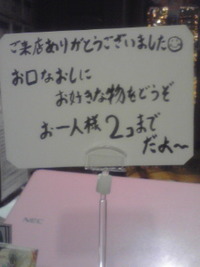 ご来店ありがとうございました☺
お口なおしに
お好きな物をどうぞ
お一人様2コまで
だよ〜
NEC